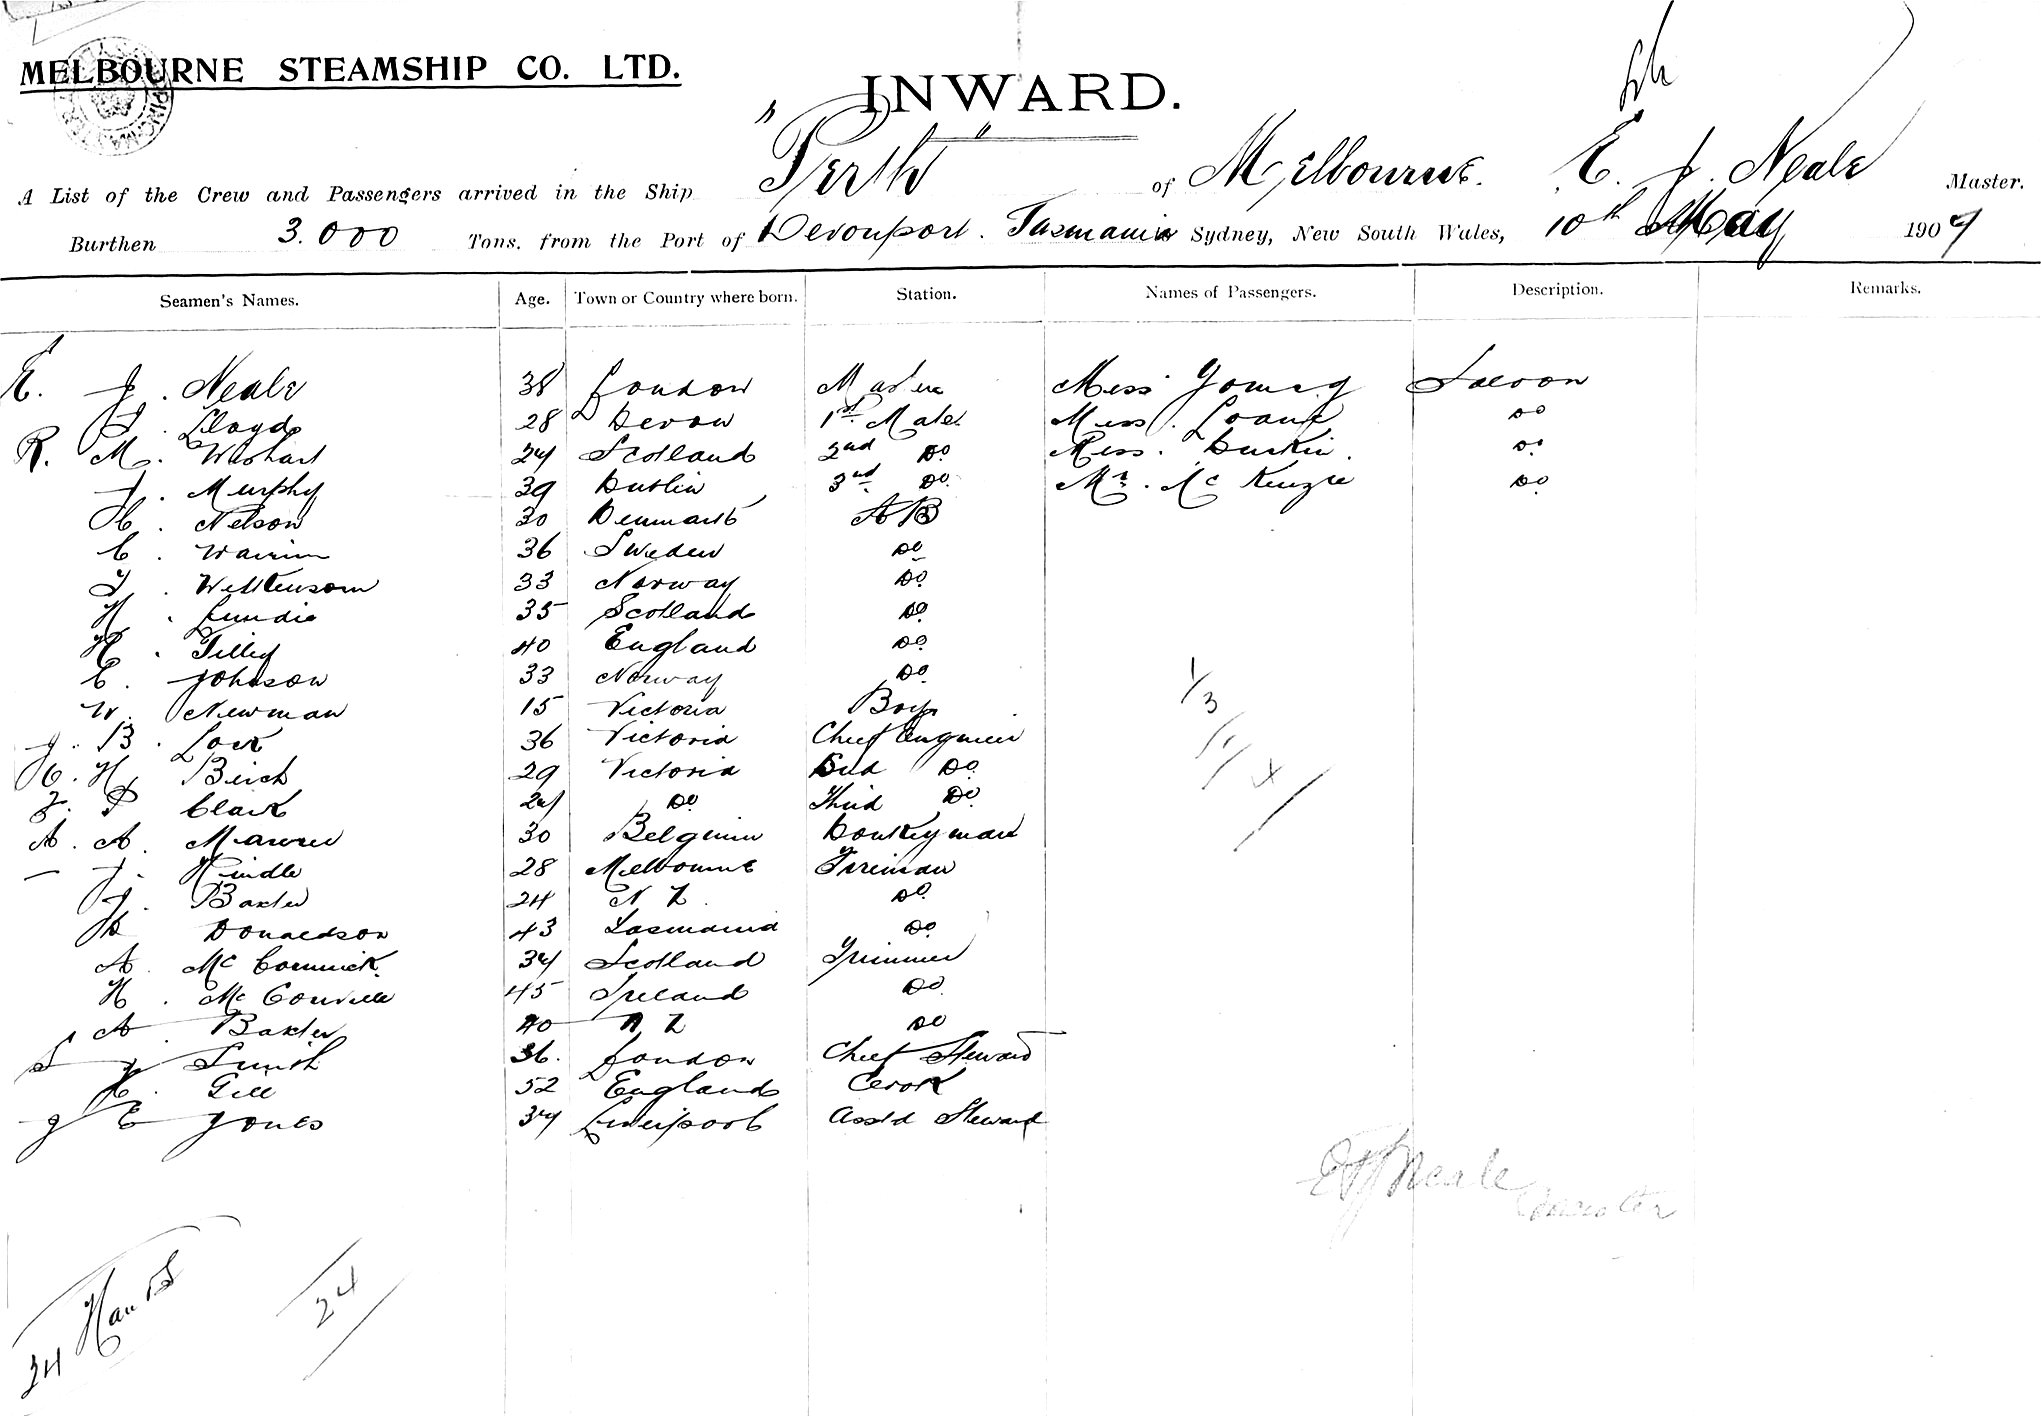 MELBOURNE STEAMSHIP CO. LTD.
INWARD.
A List of the Crew and Passengers arrived in the Ship "Perth" of Melbourne. E. J. Neale Master.
Burthen 3.000 Tons. from the Port of Devonport. Tasmania Sydney, New South Wales, 10th May 1909
Seamen's Names. Age. Town or Country where born. Station. Names of Passengers. Description. Remarks.
E. J. Neale 38 London Master Miss Young Saloon
J. Lloyd 28 Devon 1st. Mate. Miss. Loane Do
R. M. Wishart 24 Scotland 2nd Do Miss. Durkin. Do
J. Murphy 39 Dublin 3rd. Do. Mr. McKenzie Do
H. Nelson 30 Denmark AB
C. 36 Sweden Do
J. Wilkensom 33 Norway Do
H. Lundie 35 Scotland Do
H. Tilley 40 England Do
C. Johnson 33 Norway Do
W. Newman 15 Victoria Boy
J. B. Lock 36 Victoria Chief Engineer
C. H. Birch 29 Victoria 2nd Do
F. P. Clark 24 Do Third Do
A. A. 30 Belguim Donkeyman
J. Hindle 28 Melbourne Fireman
J. Baxter 24 N Z. Do
D Donaldson 43 Tasmania Do
A. McCormick. 34 Scotland Trimmer
H. McConville 45 Ireland Do
A Baxter 40 N Z Do
S J Smith 36. London Chief Steward
H. Gill 52 England Cook
J E Jones 34 Liverpool Asstd Steward
1/3
E J Neale
Master
24 Hands
24